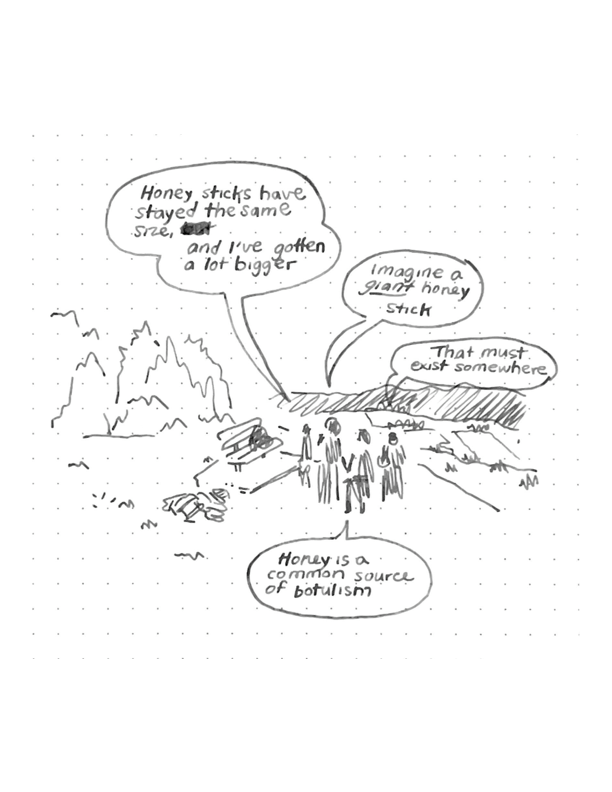 Honey sticks have
stayed the same
size,
and I've gotten
a lot bigger
Imagine a
giant honey
stick
That must
exist somewhere
Honey is a
common source
of botulism